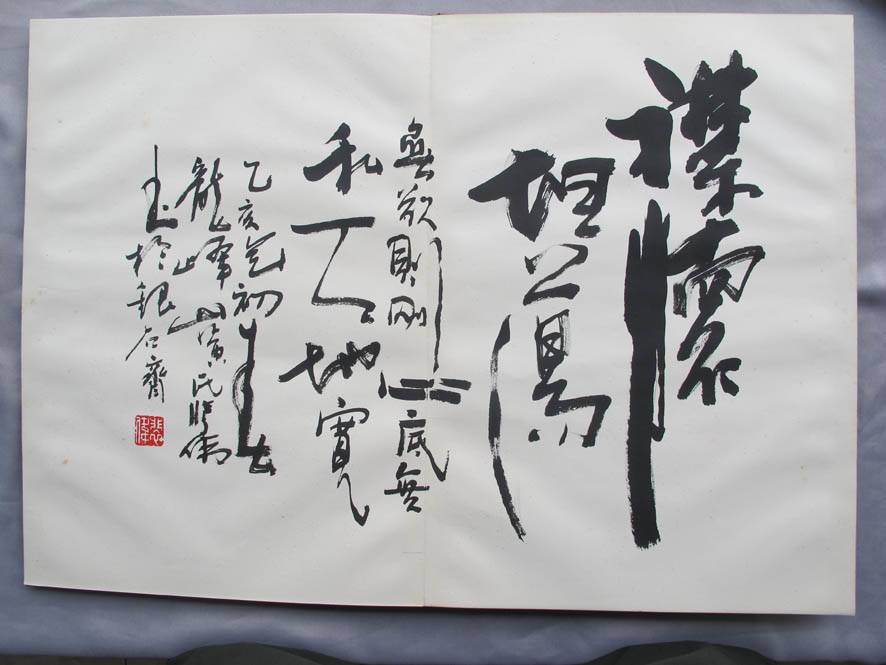 襟懷
坦蕩
無欲則剛心底無
私天地寬
乙亥初
龍峰山黃氏
於銀石齋